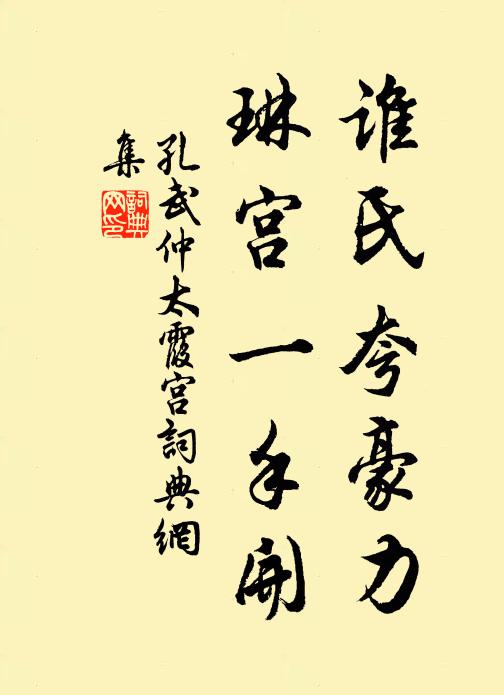 谁氏夸豪力
琳宫一手开
孔武仲太霞宫詞典網
集
詞典
网印